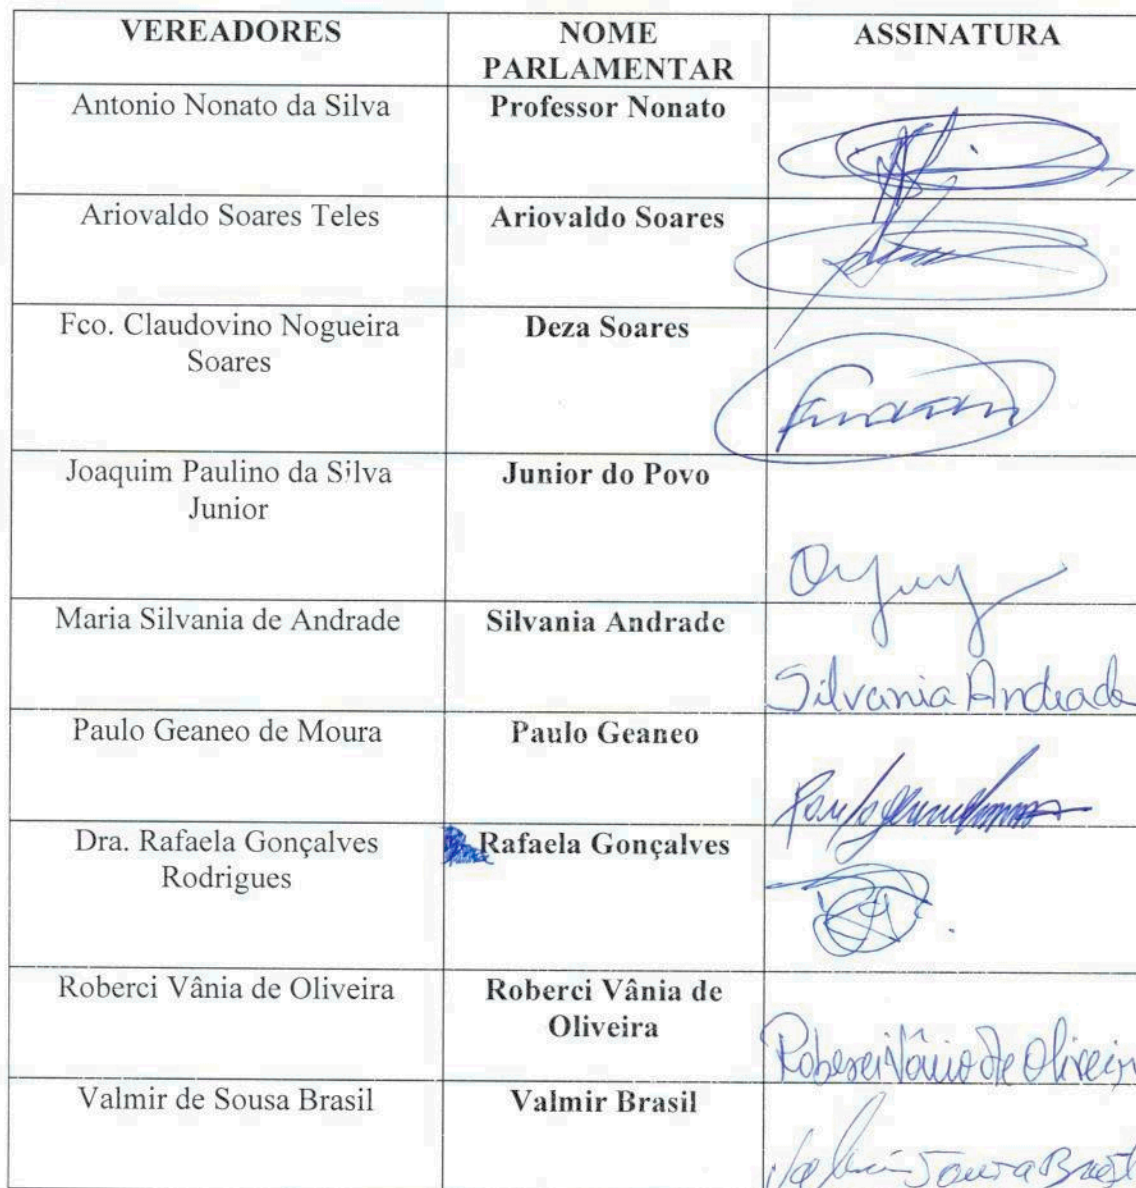 VEREADORES
NOME
PARLAMENTAR
ASSINATURA
Antonio Nonato da Silva
Professor Nonato
Ariovaldo Soares Teles
Ariovaldo Soares
Fco. Claudovino Nogueira
Soares
Deza Soares
Joaquim Paulino da Silva
Junior
Junior do Povo
Maria Silvania de Andrade
Silvania Andrade
Silvania Andrade
Paulo Geaneo de Moura
Paulo Geaneo
Dra. Rafaela Gonçalves
Rodrigues
Rafaela Gonçalves
Roberci Vânia de Oliveira
Roberci Vânia de
Oliveira
Roberci Vânia de Oliveira
Valmir de Sousa Brasil
Valmir Brasil
Valmir Sousa Brasil